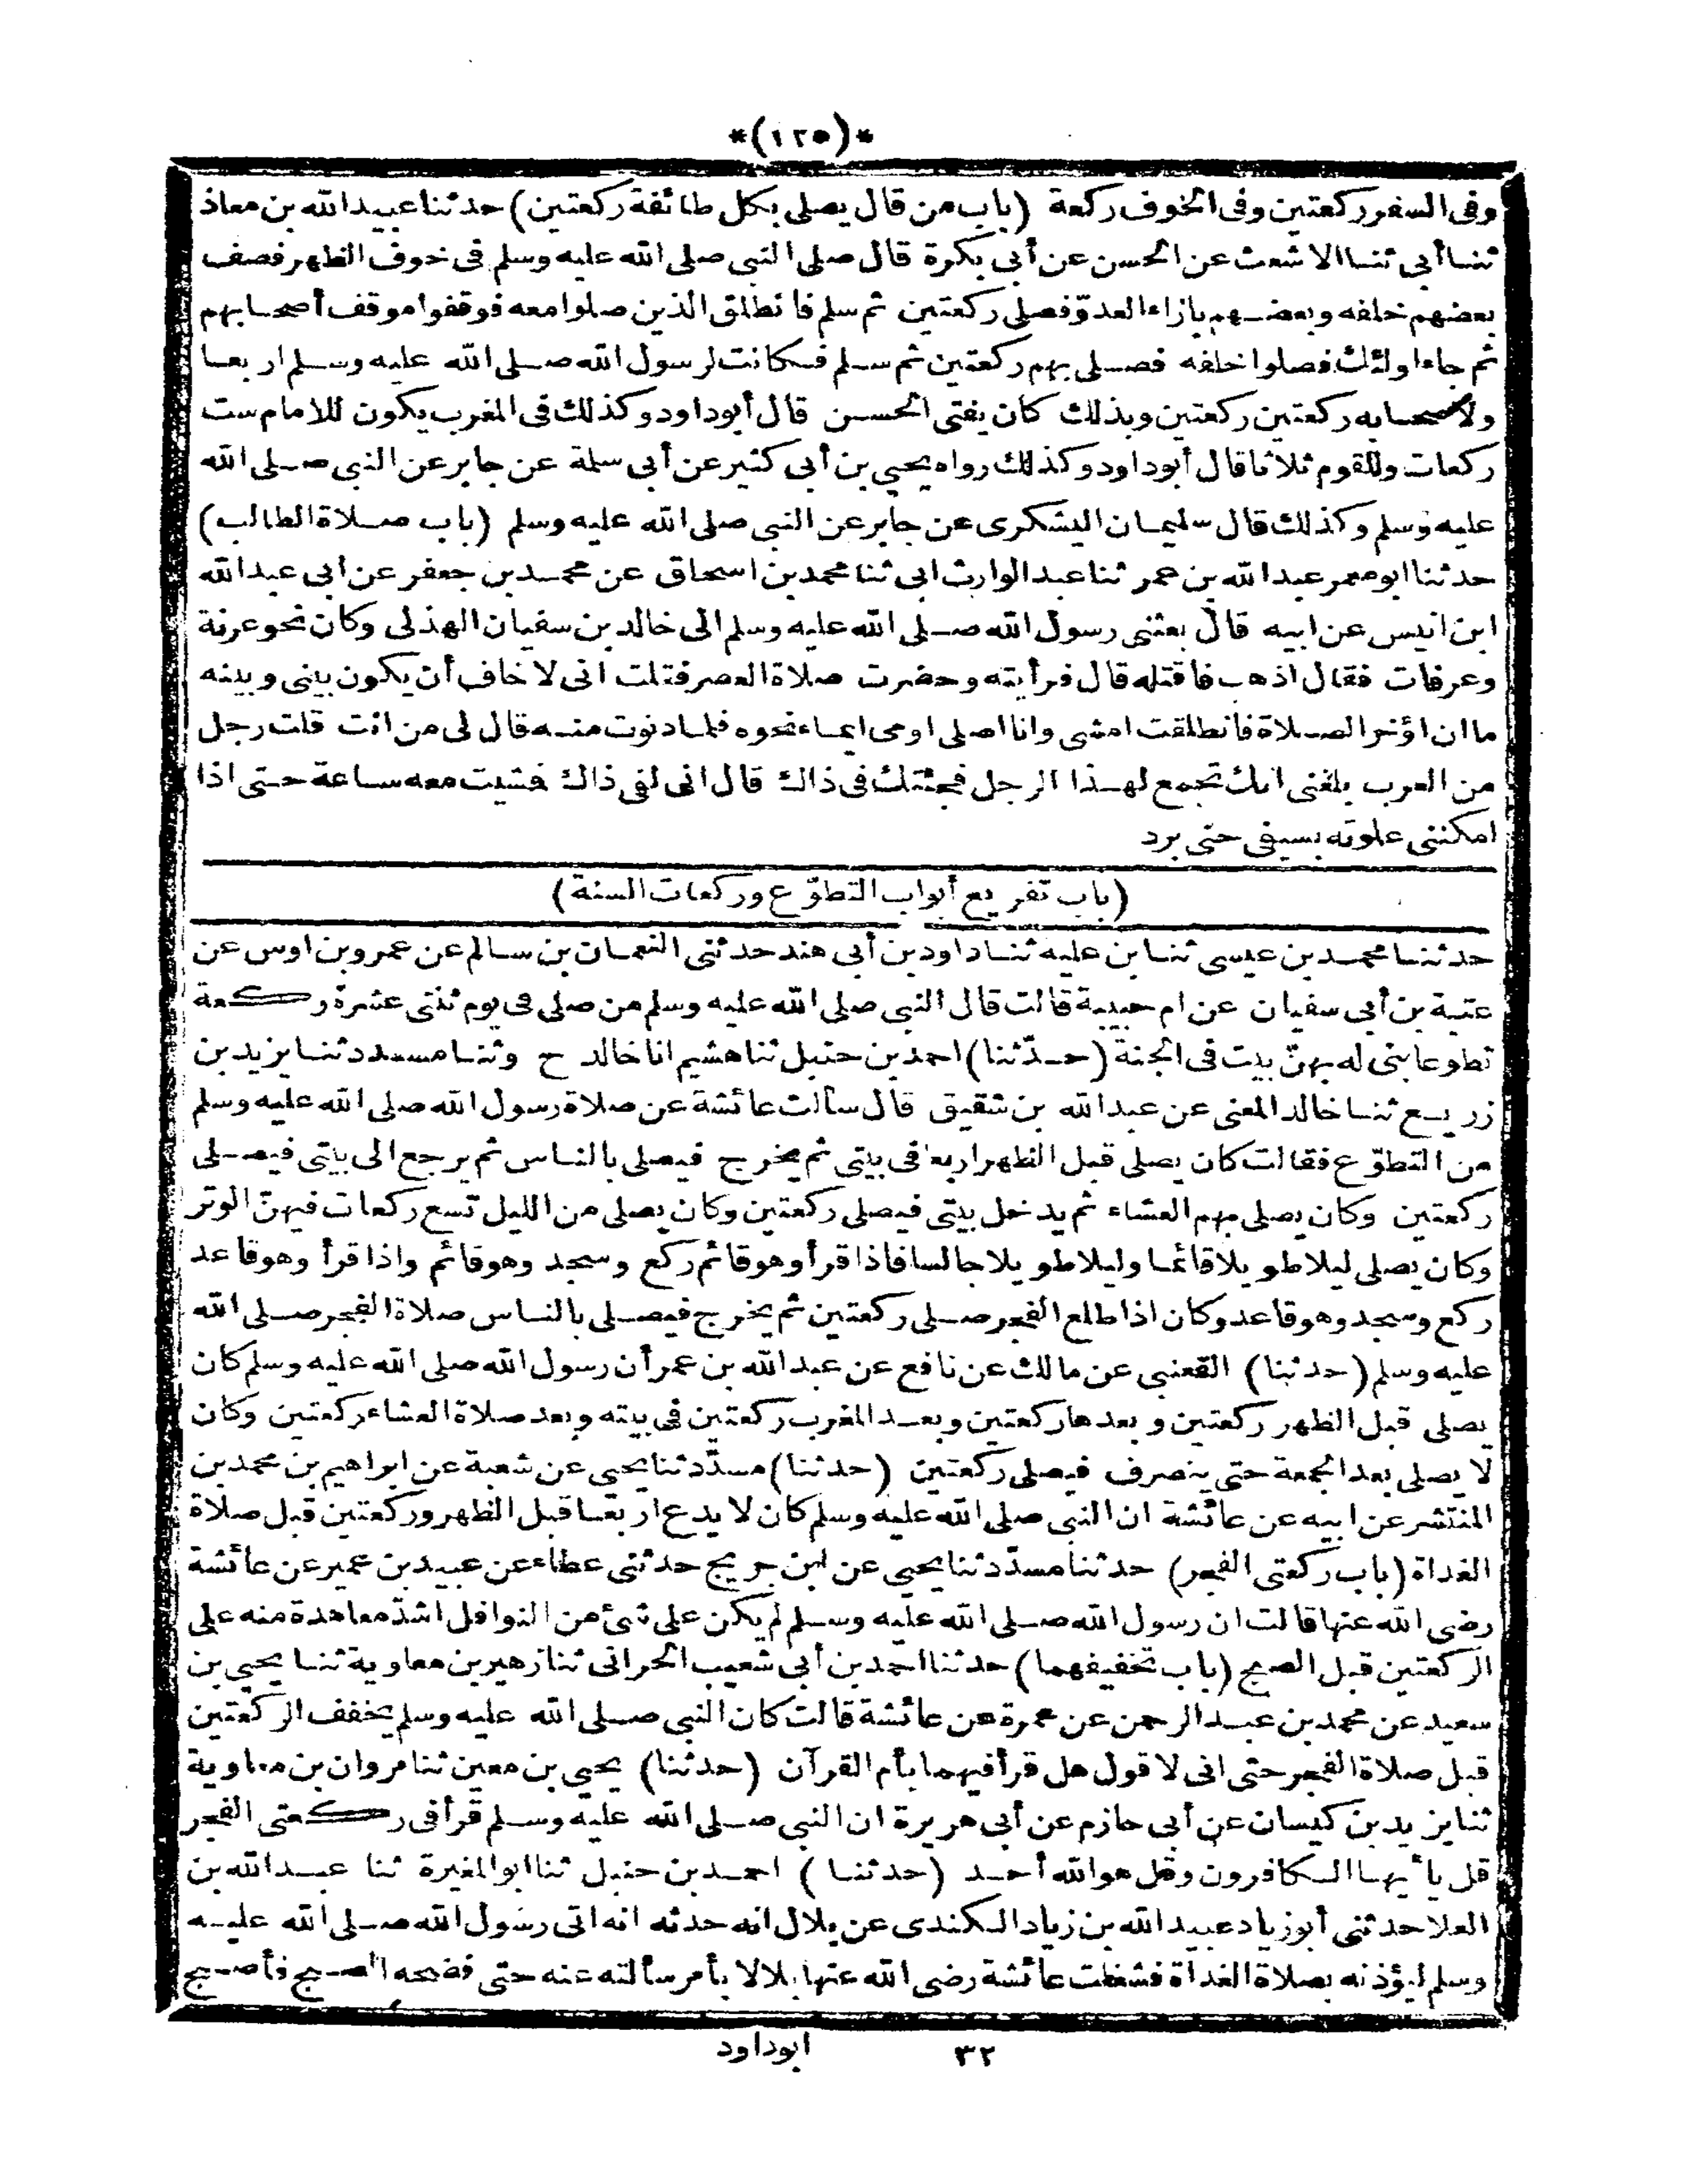 *(١٢٥)*
وفى السفر ركعتين وفى الخوف ركعة (باب من قال يصلى بكل طائفة ركعتين) حدثنا عبيد الله بن معاذ
ثنا أبى ثنا الاشعث عن الحسن عن أبى بكرة قال صلى النبى صلى الله عليه وسلم فى خوف الظهر فصف
بعضهم خلفه وبعضهم بازاء العدوّ فصلى ركعتين ثم سلم فانطلق الذين صلوا معه فوقفوا موقف أصحابهم
ثم جاء اولئك فصلوا خلفه فصلى بهم ركعتين ثم سلم فكانت لرسول الله صلى الله عليه وسلم اربعا
ولاصحابه ركعتين ركعتين وبذلك كان يفتى الحسن قال أبوداود وكذلك فى المغرب يكون للامام ست
ركعات وللقوم ثلاثا قال أبوداود وكذلك رواه يحيى بن أبى كثير عن أبى سلمة عن جابر عن النبى صلى الله
عليه وسلم وكذلك قال سليمان اليشكرى عن جابر عن النبى صلى الله عليه وسلم (باب صلاة الطالب)
حدثنا ابو معمر عبد الله بن عمر ثنا عبد الوارث ابى ثنا محمد بن اسحاق عن محمد بن جعفر عن ابى عبد الله
ابن انيس عن ابيه قال بعثنى رسول الله صلى الله عليه وسلم الى خالد بن سفيان الهذلى وكان نحو عرنة
وعرفات فقال اذهب فاقتله قال فرأيته وحضرت صلاة العصر فقلت انى لاخاف أن يكون بينى وبينه
ما ان اؤخر الصلاة فانطلقت امشى وانا اصلى اومى ايماء نحوه فلما دنوت منه قال لى من انت قلت رجل
من العرب بلغنى انك تجمع لهذا الرجل فجئتك فى ذاك قال انى لفى ذاك فمشيت معه ساعة حتى اذا
امكننى علوته بسيفى حتى برد
(باب تفريع أبواب التطوّع وركعات السنة)
حدثنا محمد بن عيسى ثنا بن عليه ثنا داود بن أبى هند حدثنى النعمان بن سالم عن عمرو بن اوس عن
عتبة بن أبى سفيان عن ام حبيبة قالت قال النبى صلى الله عليه وسلم من صلى فى يوم ثنتى عشرة ركعة
تطوعا بنى له بهنّ بيت فى الجنة (حدّثنا) احمد بن حنبل ثنا هشيم انا خالد ح وثنا مسدد ثنا يزيد بن
زريع ثنا خالد المعنى عن عبد الله بن شقيق قال سألت عائشة عن صلاة رسول الله صلى الله عليه وسلم
من التطوّع فقالت كان يصلى قبل الظهر اربعا فى بيتى ثم يخرج فيصلى بالناس ثم يرجع الى بيتى فيصلى
ركعتين وكان يصلى بهم العشاء ثم يدخل بيتى فيصلى ركعتين وكان يصلى من الليل تسع ركعات فيهنّ الوتر
وكان يصلى ليلا طويلا قائما وليلا طويلا جالسا فاذا قرأ وهو قائم ركع وسجد وهو قائم واذا قرأ وهو قاعد
ركع وسجد وهو قاعد وكان اذا طلع الفجر صلى ركعتين ثم يخرج فيصلى بالناس صلاة الفجر صلى الله
عليه وسلم (حدثنا) القعنبى عن مالك عن نافع عن عبد الله بن عمر أن رسول الله صلى الله عليه وسلم كان
يصلى قبل الظهر ركعتين وبعدها ركعتين وبعد المغرب ركعتين فى بيته وبعد صلاة العشاء ركعتين وكان
لا يصلى بعد الجمعة حتى ينصرف فيصلى ركعتين (حدثنا) مسدّد ثنا يحيى عن شعبة عن ابراهيم بن محمد بن
المنتشر عن ابيه عن عائشة ان النبى صلى الله عليه وسلم كان لا يدع اربعا قبل الظهر وركعتين قبل صلاة
الغداة (باب ركعتى الفجر) حدثنا مسدّد ثنا يحيى عن ابن جريج حدثنى عطاء عن عبيد بن عمير عن عائشة
رضى الله عنها قالت ان رسول الله صلى الله عليه وسلم لم يكن على شئ من النوافل اشدّ معاهدة منه على
الركعتين قبل الصبح (باب تخفيفهما) حدثنا احمد بن أبى شعيب الحرانى ثنا زهير بن معاوية ثنا يحيى بن
سعيد عن محمد بن عبد الرحمن عن عمرة عن عائشة قالت كان النبى صلى الله عليه وسلم يخفف الركعتين
قبل صلاة الفجر حتى انى لاقول هل قرأ فيهما بأم القرآن (حدثنا) يحيى بن معين ثنا مروان بن معاوية
ثنا يزيد بن كيسان عن أبى حازم عن أبى هريرة ان النبى صلى الله عليه وسلم قرأ فى ركعتى الفجر
قل يا أيها الكافرون وقل هو الله أحد (حدثنا) احمد بن حنبل ثنا ابو المغيرة ثنا عبد الله بن
العلا حدثنى أبو زياد عبيد الله بن زياد الكندى عن بلال انه حدثه انه اتى رسول الله صلى الله عليه
وسلم ليؤذنه بصلاة الغداة فشغلت عائشة رضى الله عنها بلالا بأمر سألته عنه حتى فضحه الصبح فأصبح
٣٢ ابوداود